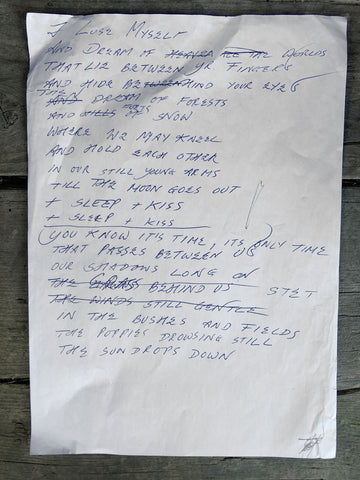 I LOSE MYSELF
AND DREAM OF HEAVEN ALL THE WORLDS
THAT LIE BETWEEN YR FINGERS
AND HIDE BETWEEN HIND YOUR EYES
THE
AND DREAM OF FORESTS
AND HILLS OF SNOW
WHERE WE MAY KNEEL
AND HOLD EACH OTHER
IN OUR STILL YOUNG ARMS
TILL THE MOON GOES OUT
+ SLEEP + KISS
+ SLEEP + KISS
(YOU KNOW IT'S TIME, ITS ONLY TIME
THAT PASSES BETWEEN US
OUR SHADOWS LONG ON
THE GRASS BEHIND US STET
THE WINDS STILL GENTLE
IN THE BUSHES AND FIELDS
THE POPPIES DROWSING STILL
THE SUN DROPS DOWN